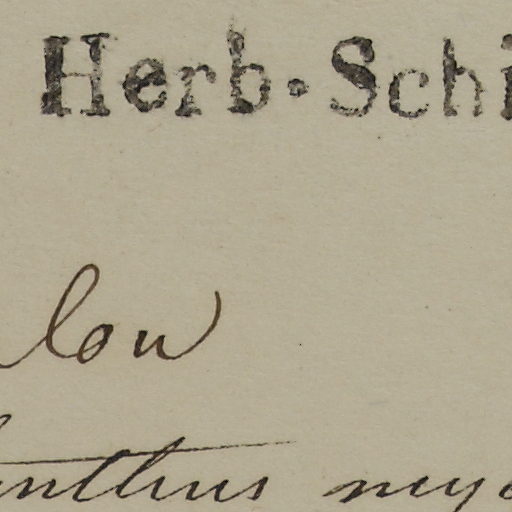 Herb. Schi
low
anthus myo